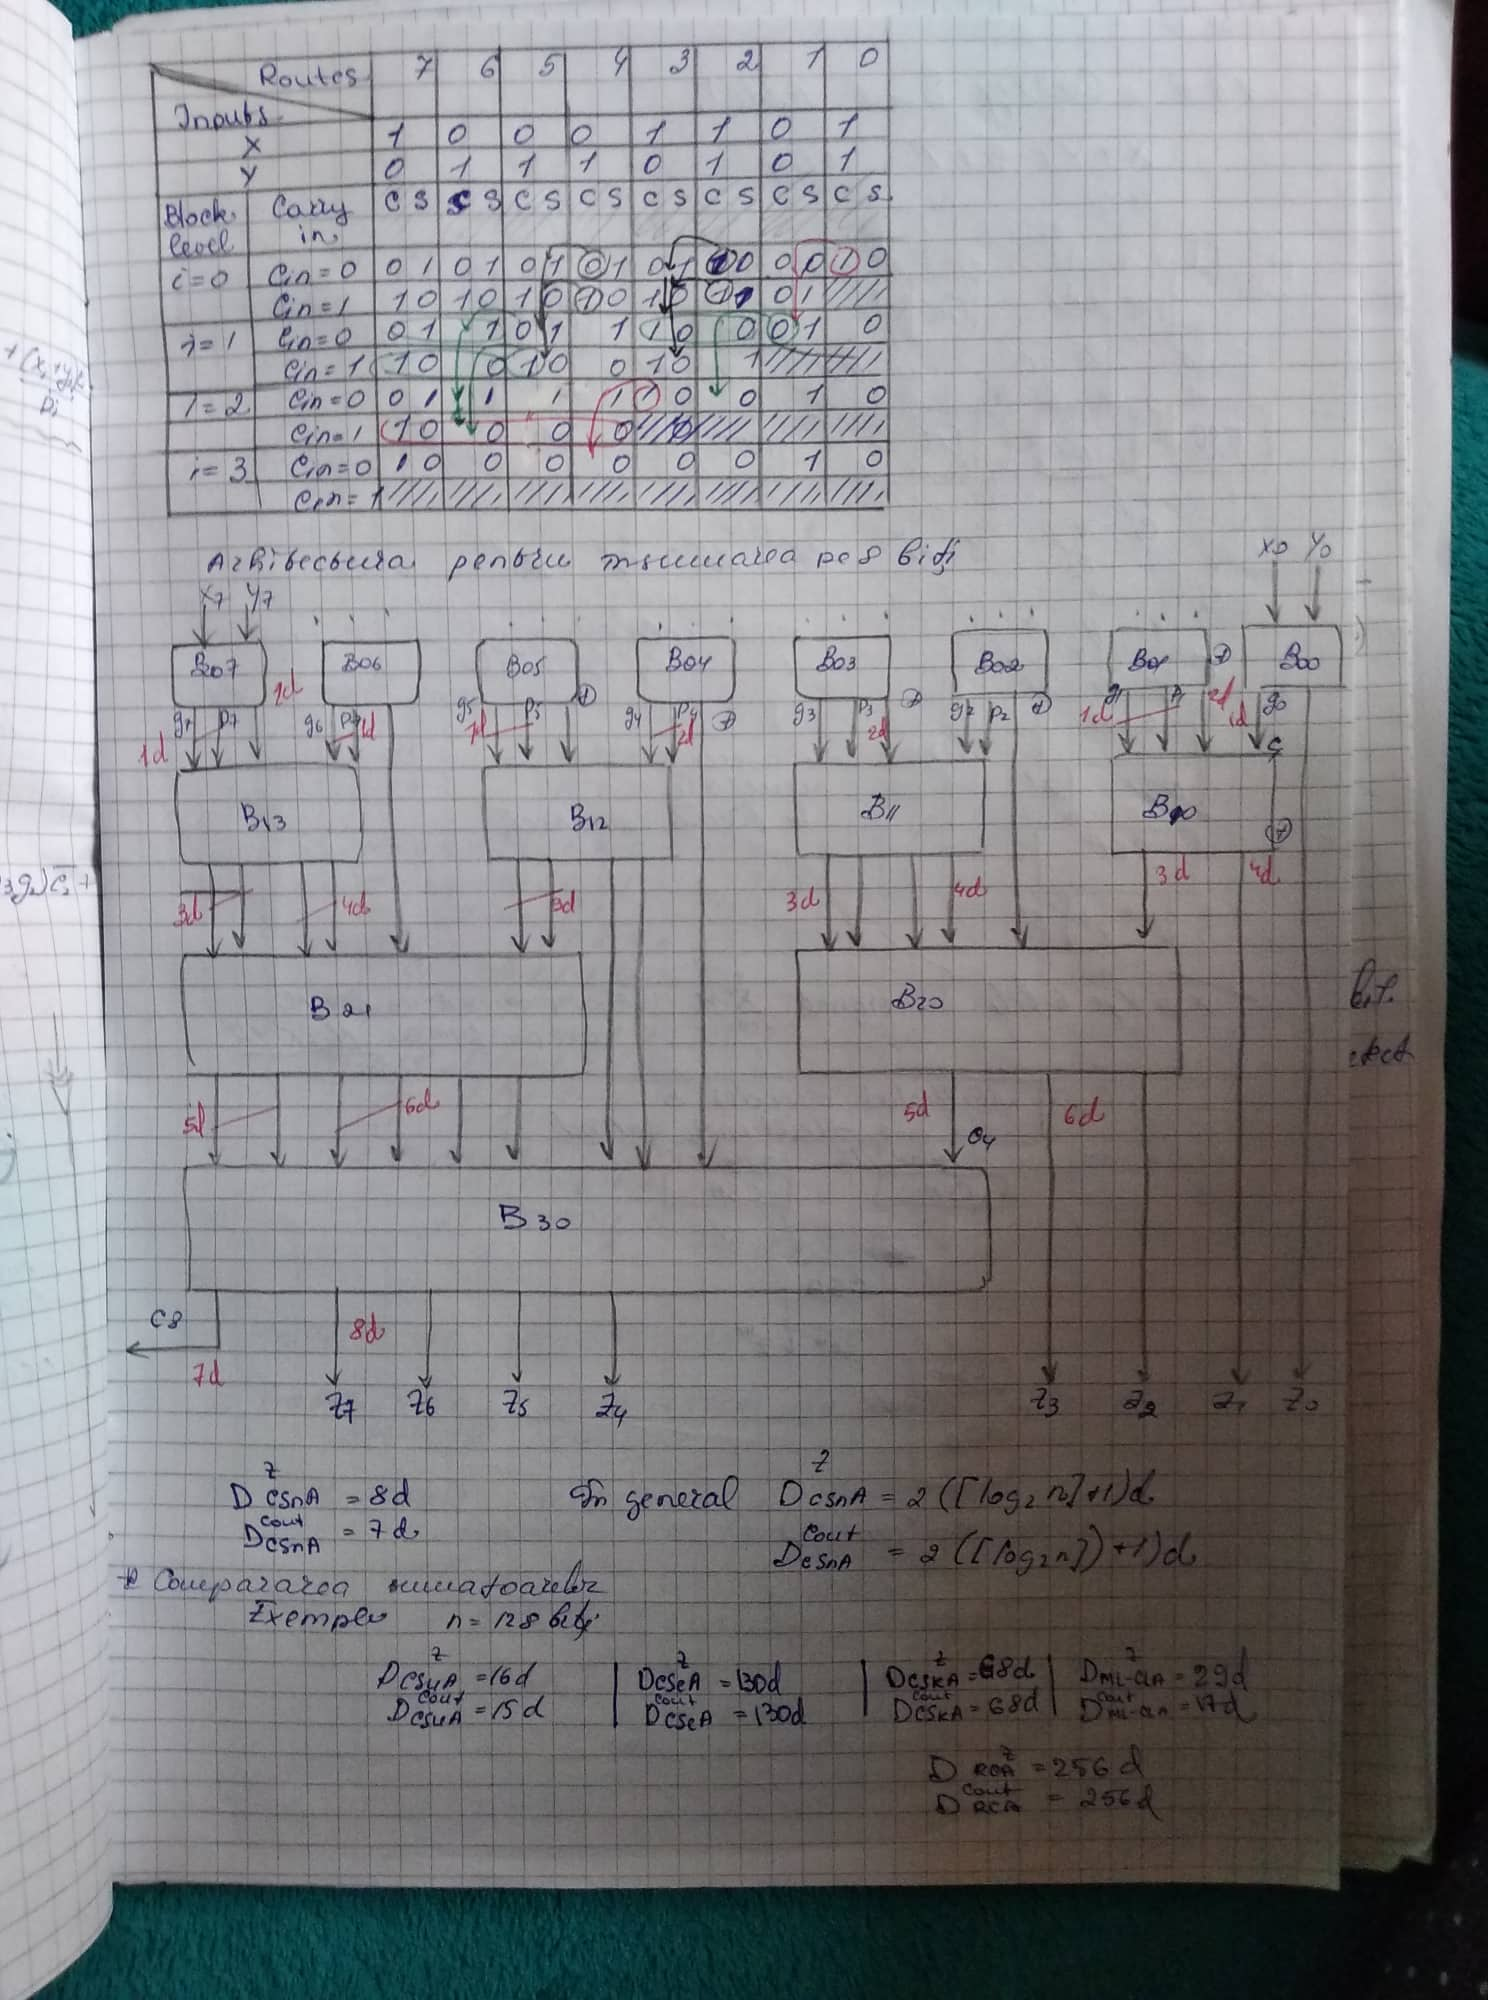 Routes 7 6 5 4 3 2 1 0
Inputs
X 1 0 0 0 1 1 0 1
Y 0 1 1 1 0 1 0 1
Block level Carry in C S C S C S C S C S C S C S C S
i=0 Cin=0 0 1 0 1 0 1 0 1 0 1 1 0 0 0 1 0
Cin=1 1 0 1 0 1 0 1 0 1 0 1 1 0 1
i=1 Cin=0 0 1 1 0 1 1 1 0 0 0 1 0
Cin=1 1 0 0 1 0 0 1 0 1
i=2 Cin=0 0 1 1 1 1 1 0 0 1 0
Cin=1 1 0 0 0 0
i=3 Cin=0 1 0 0 0 0 0 0 1 0
Cin=1
Arhitectura pentru însumarea pe 8 biți
X7 Y7 X0 Y0
B07 B06 B05 B04 B03 B02 B01 B00
g7 p7 1d g6 p6 1d g5 p5 g4 p4 g3 p3 g2 p2 g1 p1 2d g0
1d 1d 2d 2d 1d 1d
B13 B12 B11 B10
3d 4d 3d 3d 4d 3d 4d
B21 B20
5d 6d 5d C4 6d
B30
C8
7d 8d
Z7 Z6 Z5 Z4 Z3 Z2 Z1 Z0
D^Z CSnA = 8d În general D^Z CSnA = 2([log2 n]+1)d
D^cout CSnA = 7d D^cout CSnA = 2([log2 n])+1)d
Compararea sumatoarelor
Exemplu n=128 biți
D^Z CSuA = 16d | D^Z CSeA = 130d | D^Z CSkA = 68d | D^Z ML-CLA = 29d
D^cout CSuA = 15d | D^cout CSeA = 130d | D^cout CSkA = 68d | D^cout ML-CLA = 17d
D^Z RCA = 256d
D^cout RCA = 256d